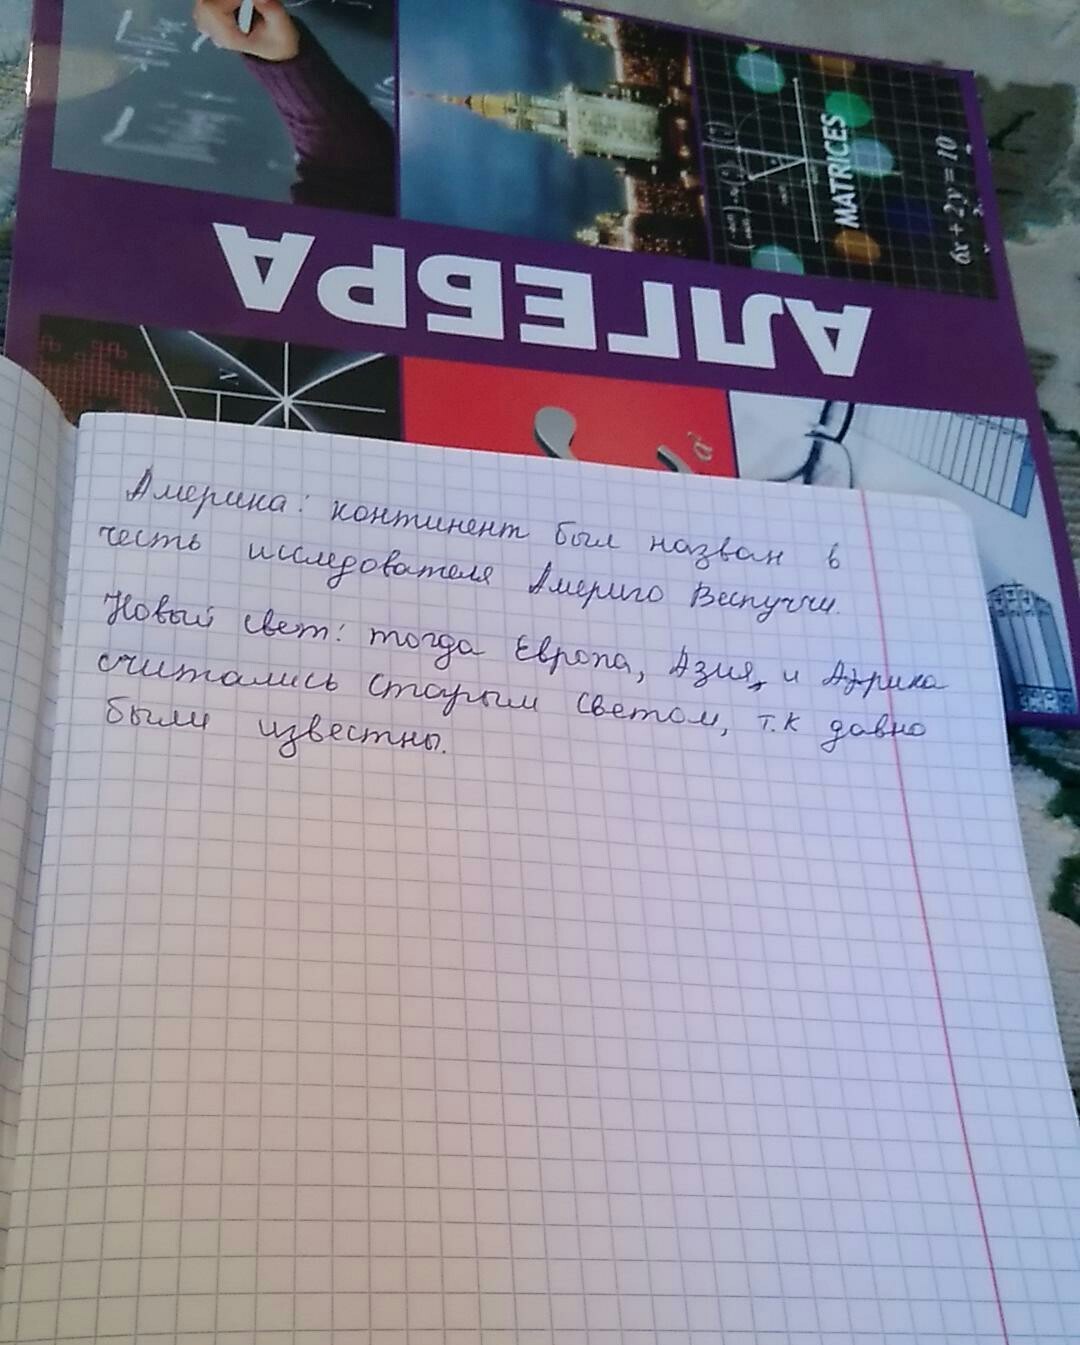 MATRICES
6x + 2y = 10
АЛГЕБРА
Америка: континент был назван в
честь исследователя Америго Веспуччи.
Новый свет: тогда Европа, Азия, и Африка
считались старым светом, т.к давно
были известны.